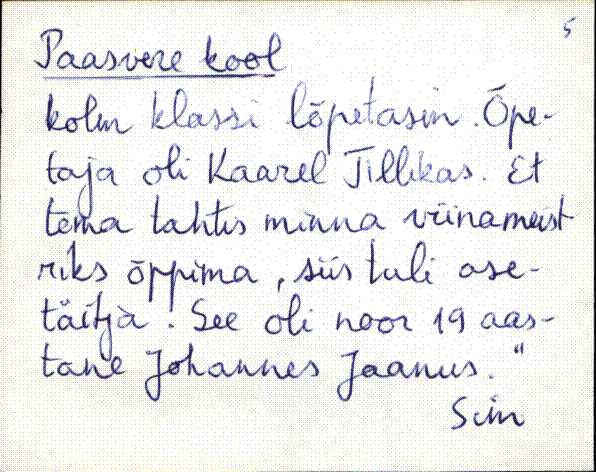 5
Paasvere kool
kolm klassi lõpetasin. Õpe-
taja oli Kaarel Tillikas. Et
tema tahtis minna viinameist
riks õppima, siis tuli ase-
täitja. See oli noor 19 aas-
tane Johannes Jaanus."
Siin